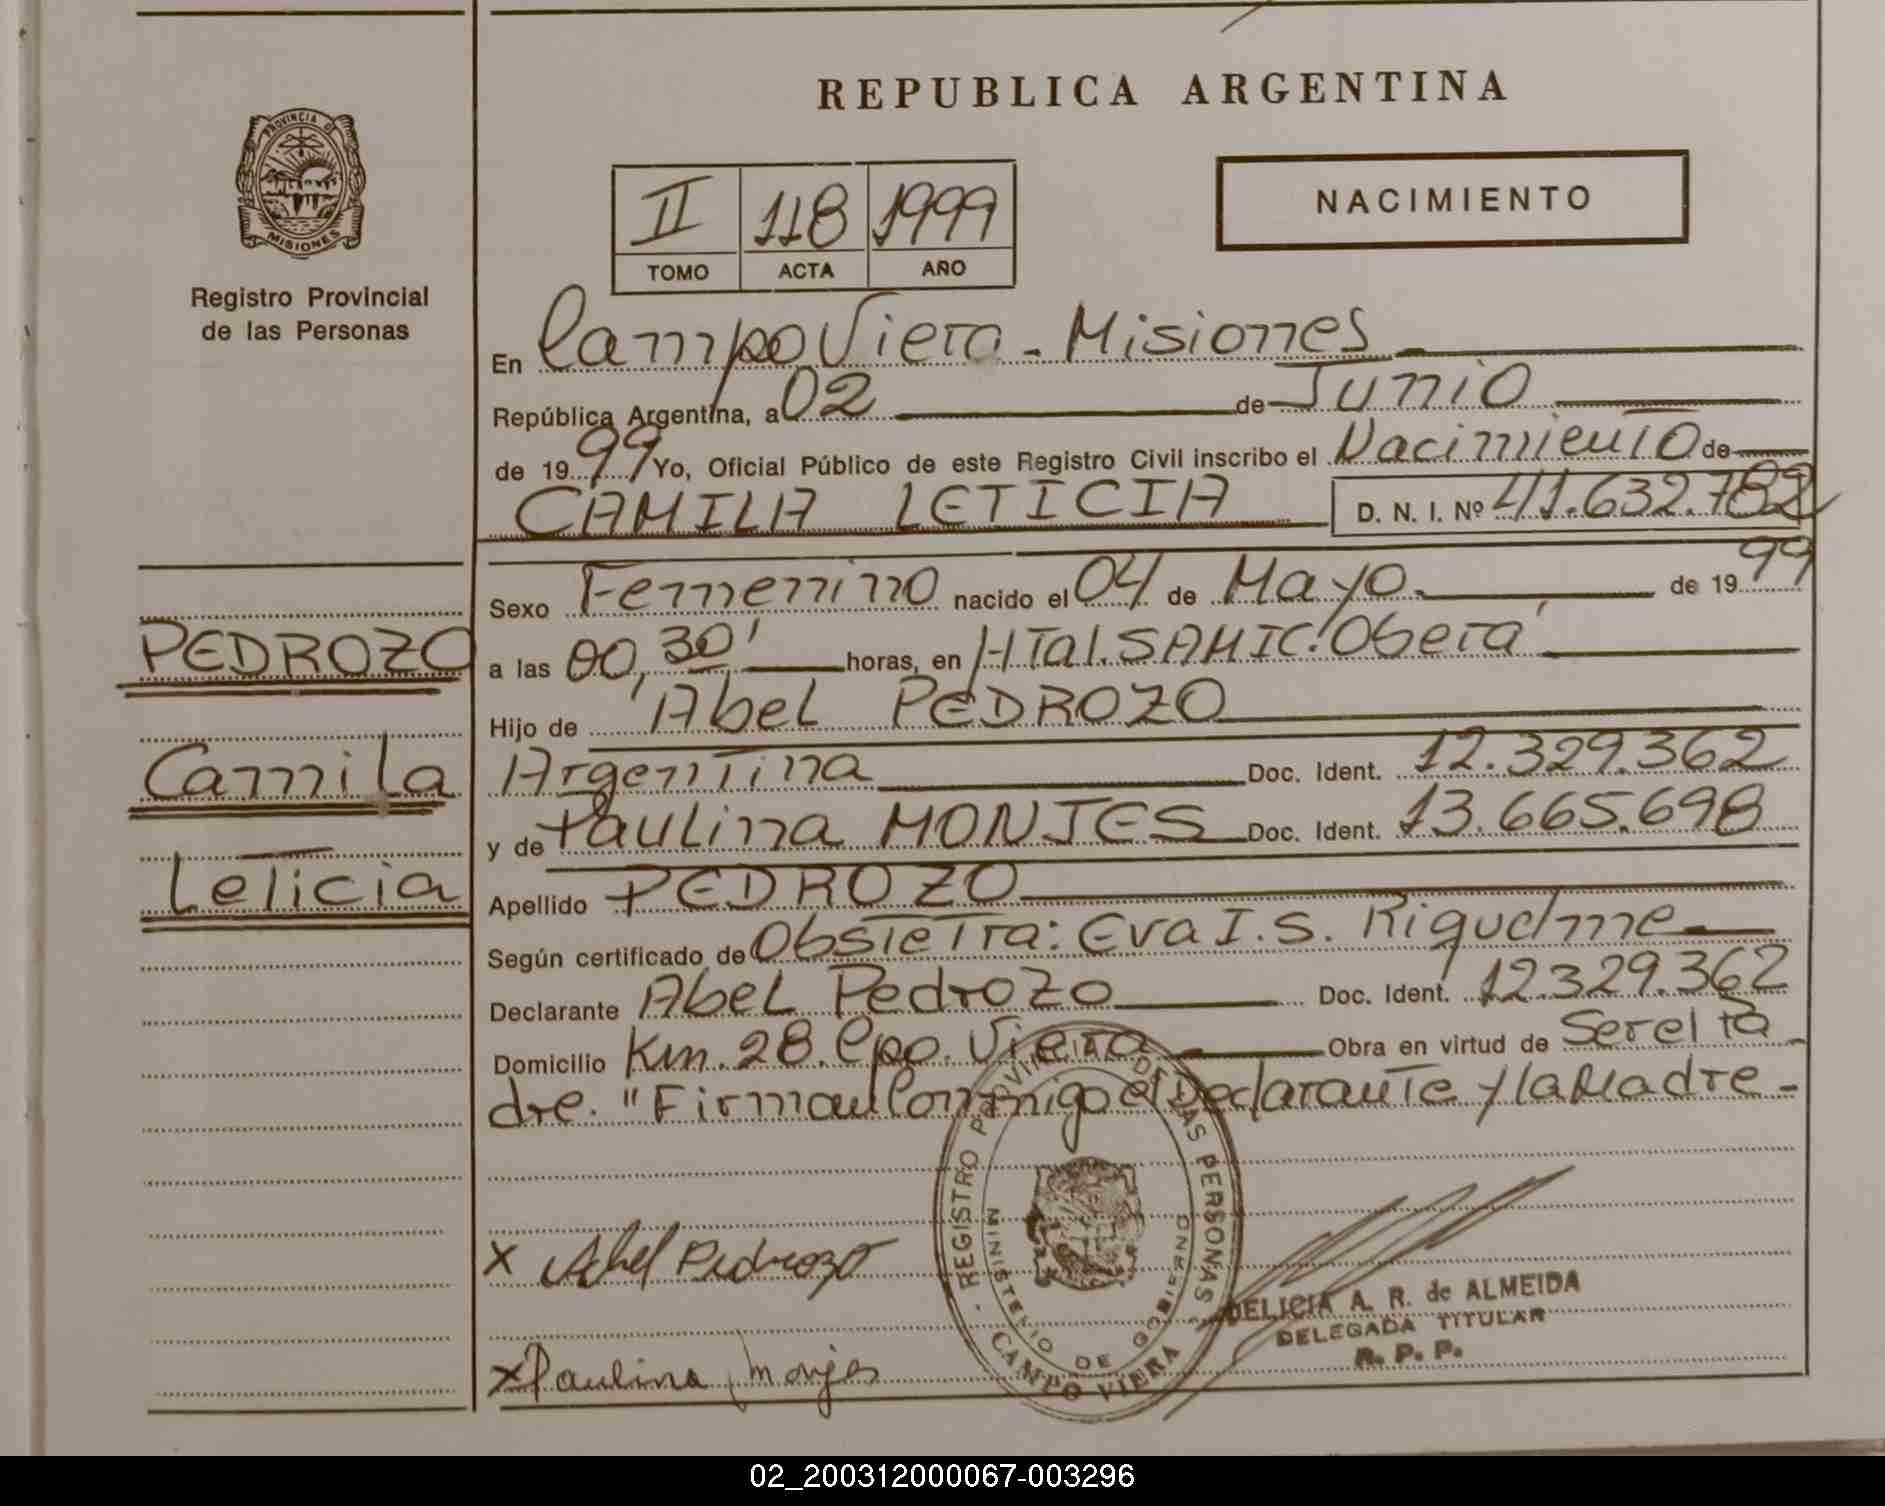 REPUBLICA ARGENTINA
PROVINCIA DE
MISIONES
Registro Provincial
de las Personas
II 118 1999
TOMO ACTA AÑO
NACIMIENTO
En Campo Viera - Misiones
República Argentina, a 02 de Junio
de 1999 Yo, Oficial Público de este Registro Civil inscribo el Nacimiento de
CAMILA LETICIA D. N. I. Nº 41.632.782
Sexo Femenino nacido el 04 de Mayo. de 1999
PEDROZO
a las 00,30' horas, en HTal. SAMIC. Oberá
Hijo de Abel PEDROZO
Camila
Argentina Doc. Ident. 12.329.362
y de Paulina MONJES Doc. Ident. 13.665.698
Leticia
Apellido PEDROZO
Según certificado de Obstetra: Eva I. S. Riquelme
Declarante Abel Pedrozo Doc. Ident. 12.329.362
Domicilio Km. 28. Cpo. Viera Obra en virtud de Ser el Pa
dre. "Firman Conmigo el Declarante y la Madre -
X Abel Pedrozo
X Paulina Monjes
REGISTRO PROVINCIAL DE LAS PERSONAS
MINISTERIO DE GOBIERNO
CAMPO VIERA
DELICIA A. R. de ALMEIDA
DELEGADA TITULAR
R. P. P.
02_200312000067-003296